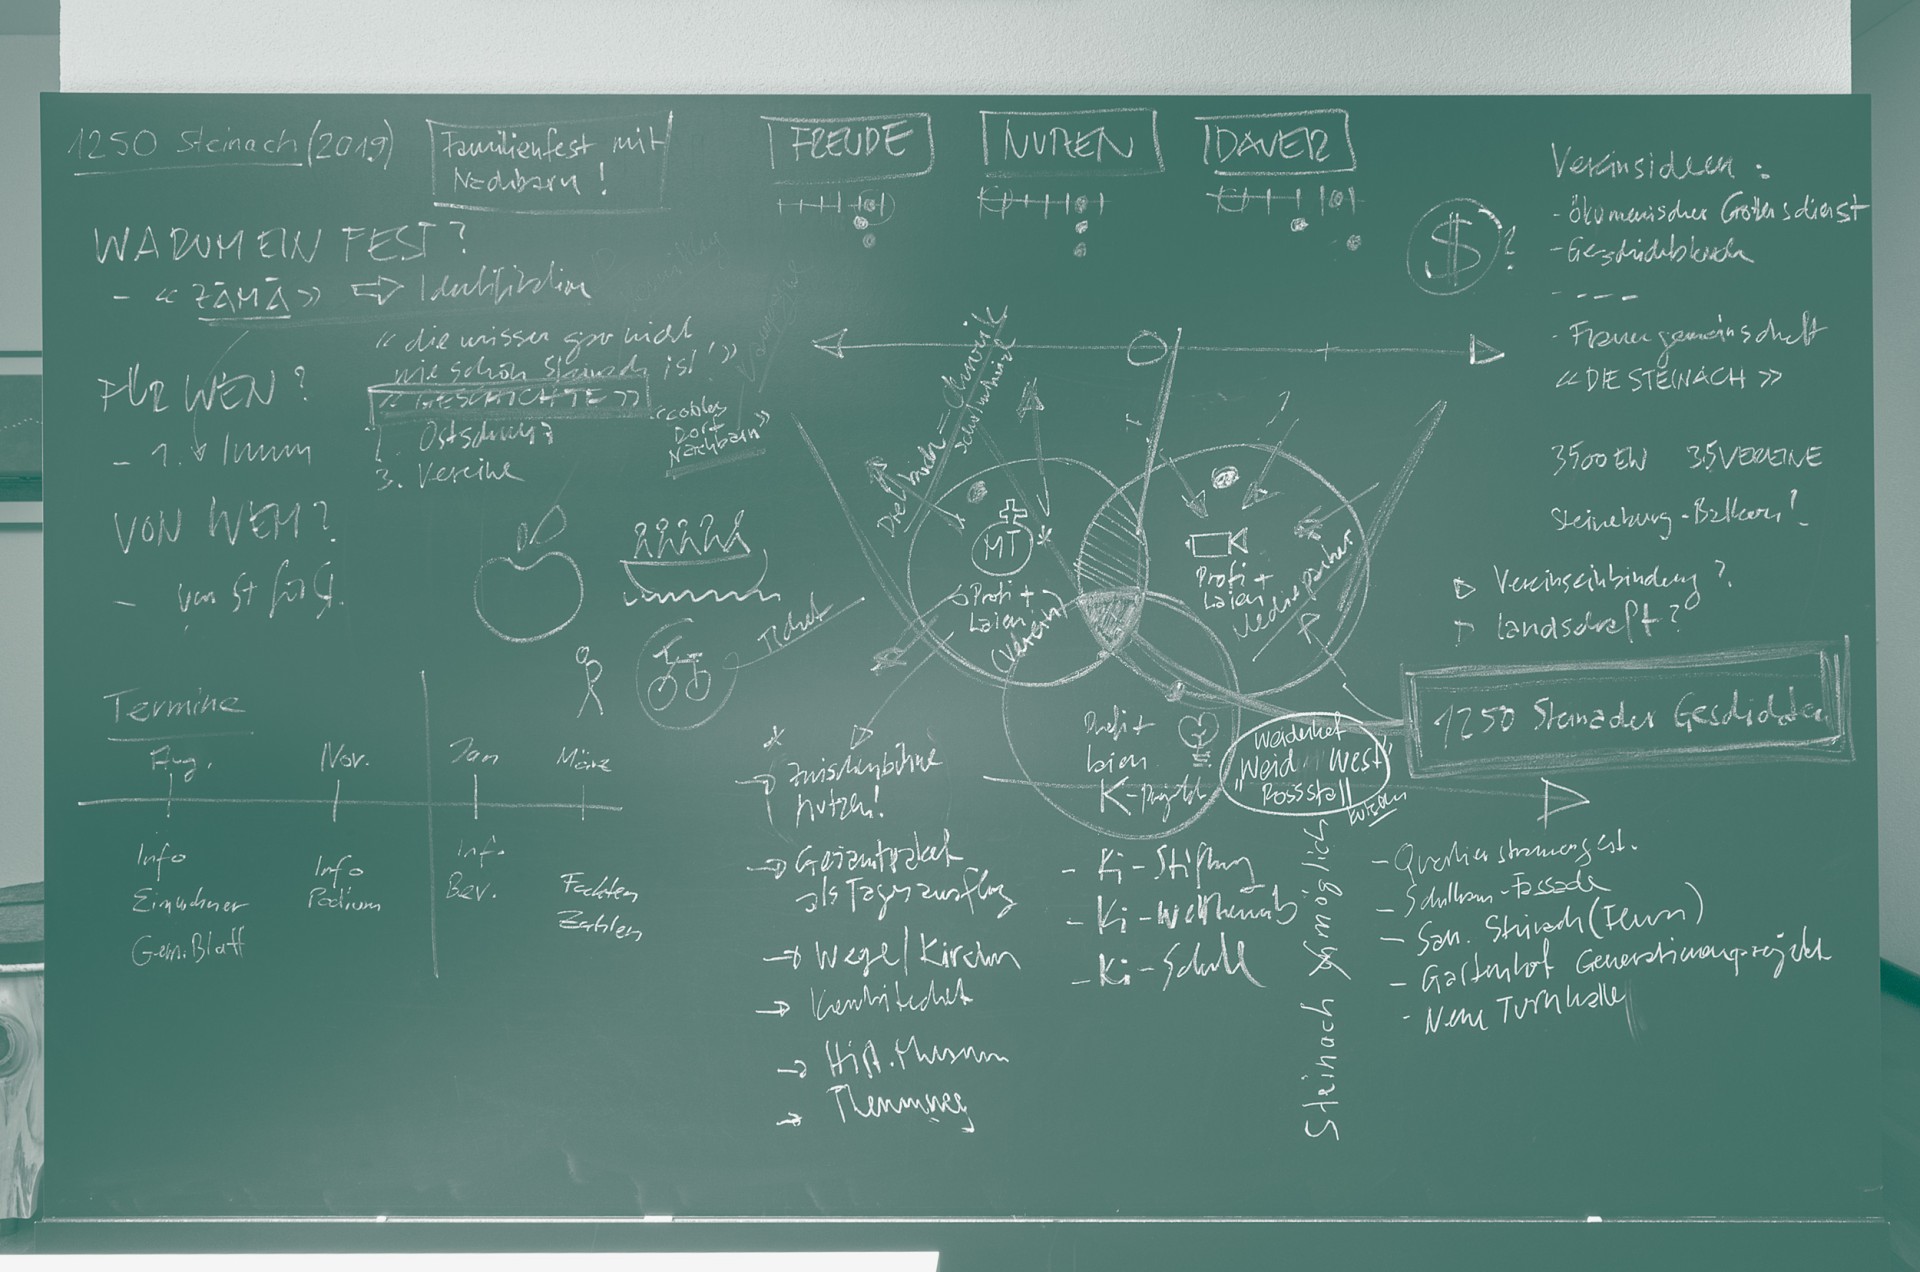 1250 Steinach (2019)
Familienfest mit
Nachbarn!
FREUDE
NUTZEN
DAUER
WARUM EIN FEST?
- « ZÄMÄ » ⇨ Identifikation
« die wissen gar nicht
wie schön Steinach ist! »
« GESCHICHTE »
FÜR WEN?
- 1.
2.
3. Vereine
Dorf
Nachbarn»
VON WEM?
-
Ticket
Termine
Aug.
Nov.
Jan
März
Info
Einwohner
Gem.Blatt
Info
Podium
Inf.
Bev.
Fackten
Zahlen
$ ?
MT
Profi +
Laien
(Verein)
Profi +
Laien
Profi +
Laien
K-Projekt
*
Zwischenbühne
nutzen!
Gesamtpaket
als Tagesausflug
Wege/Kirchen
Hist. Museum
Themenweg
- Ki-Stiftung
- Ki-Wettbewerb
- Ki-Schule
Weidenhof
"Weid West"
Rossstall
Wissen
Steinach
Vereinsideen:
- ökumenischer Gottesdienst
- - - -
- Frauengemeinschaft
« DIE STEINACH »
3500 EW 35 VEREINE
▷ Vereinseinbindung?
▷ Landschaft?
1250 Steinacher Geschichten
- Schulhaus-Fassade
- San. Steinach
- Gartenhof Generationenprojekt
- Neue Turnhalle